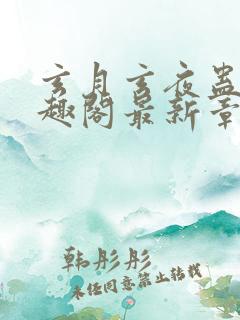 玄月玄夜蛊
趣阁最新章
韩彤彤
未经同意禁止转载